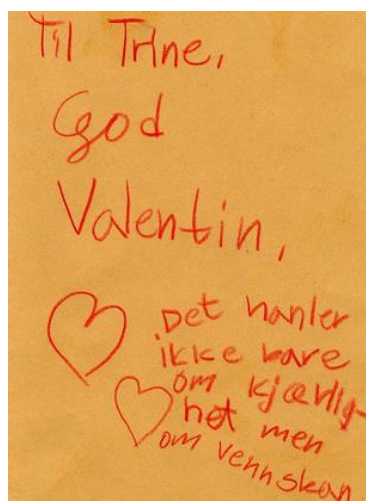 Til Trine,
God
Valentin,
Det hanler
ikke bare
om kjærlig-
het men
om vennskap